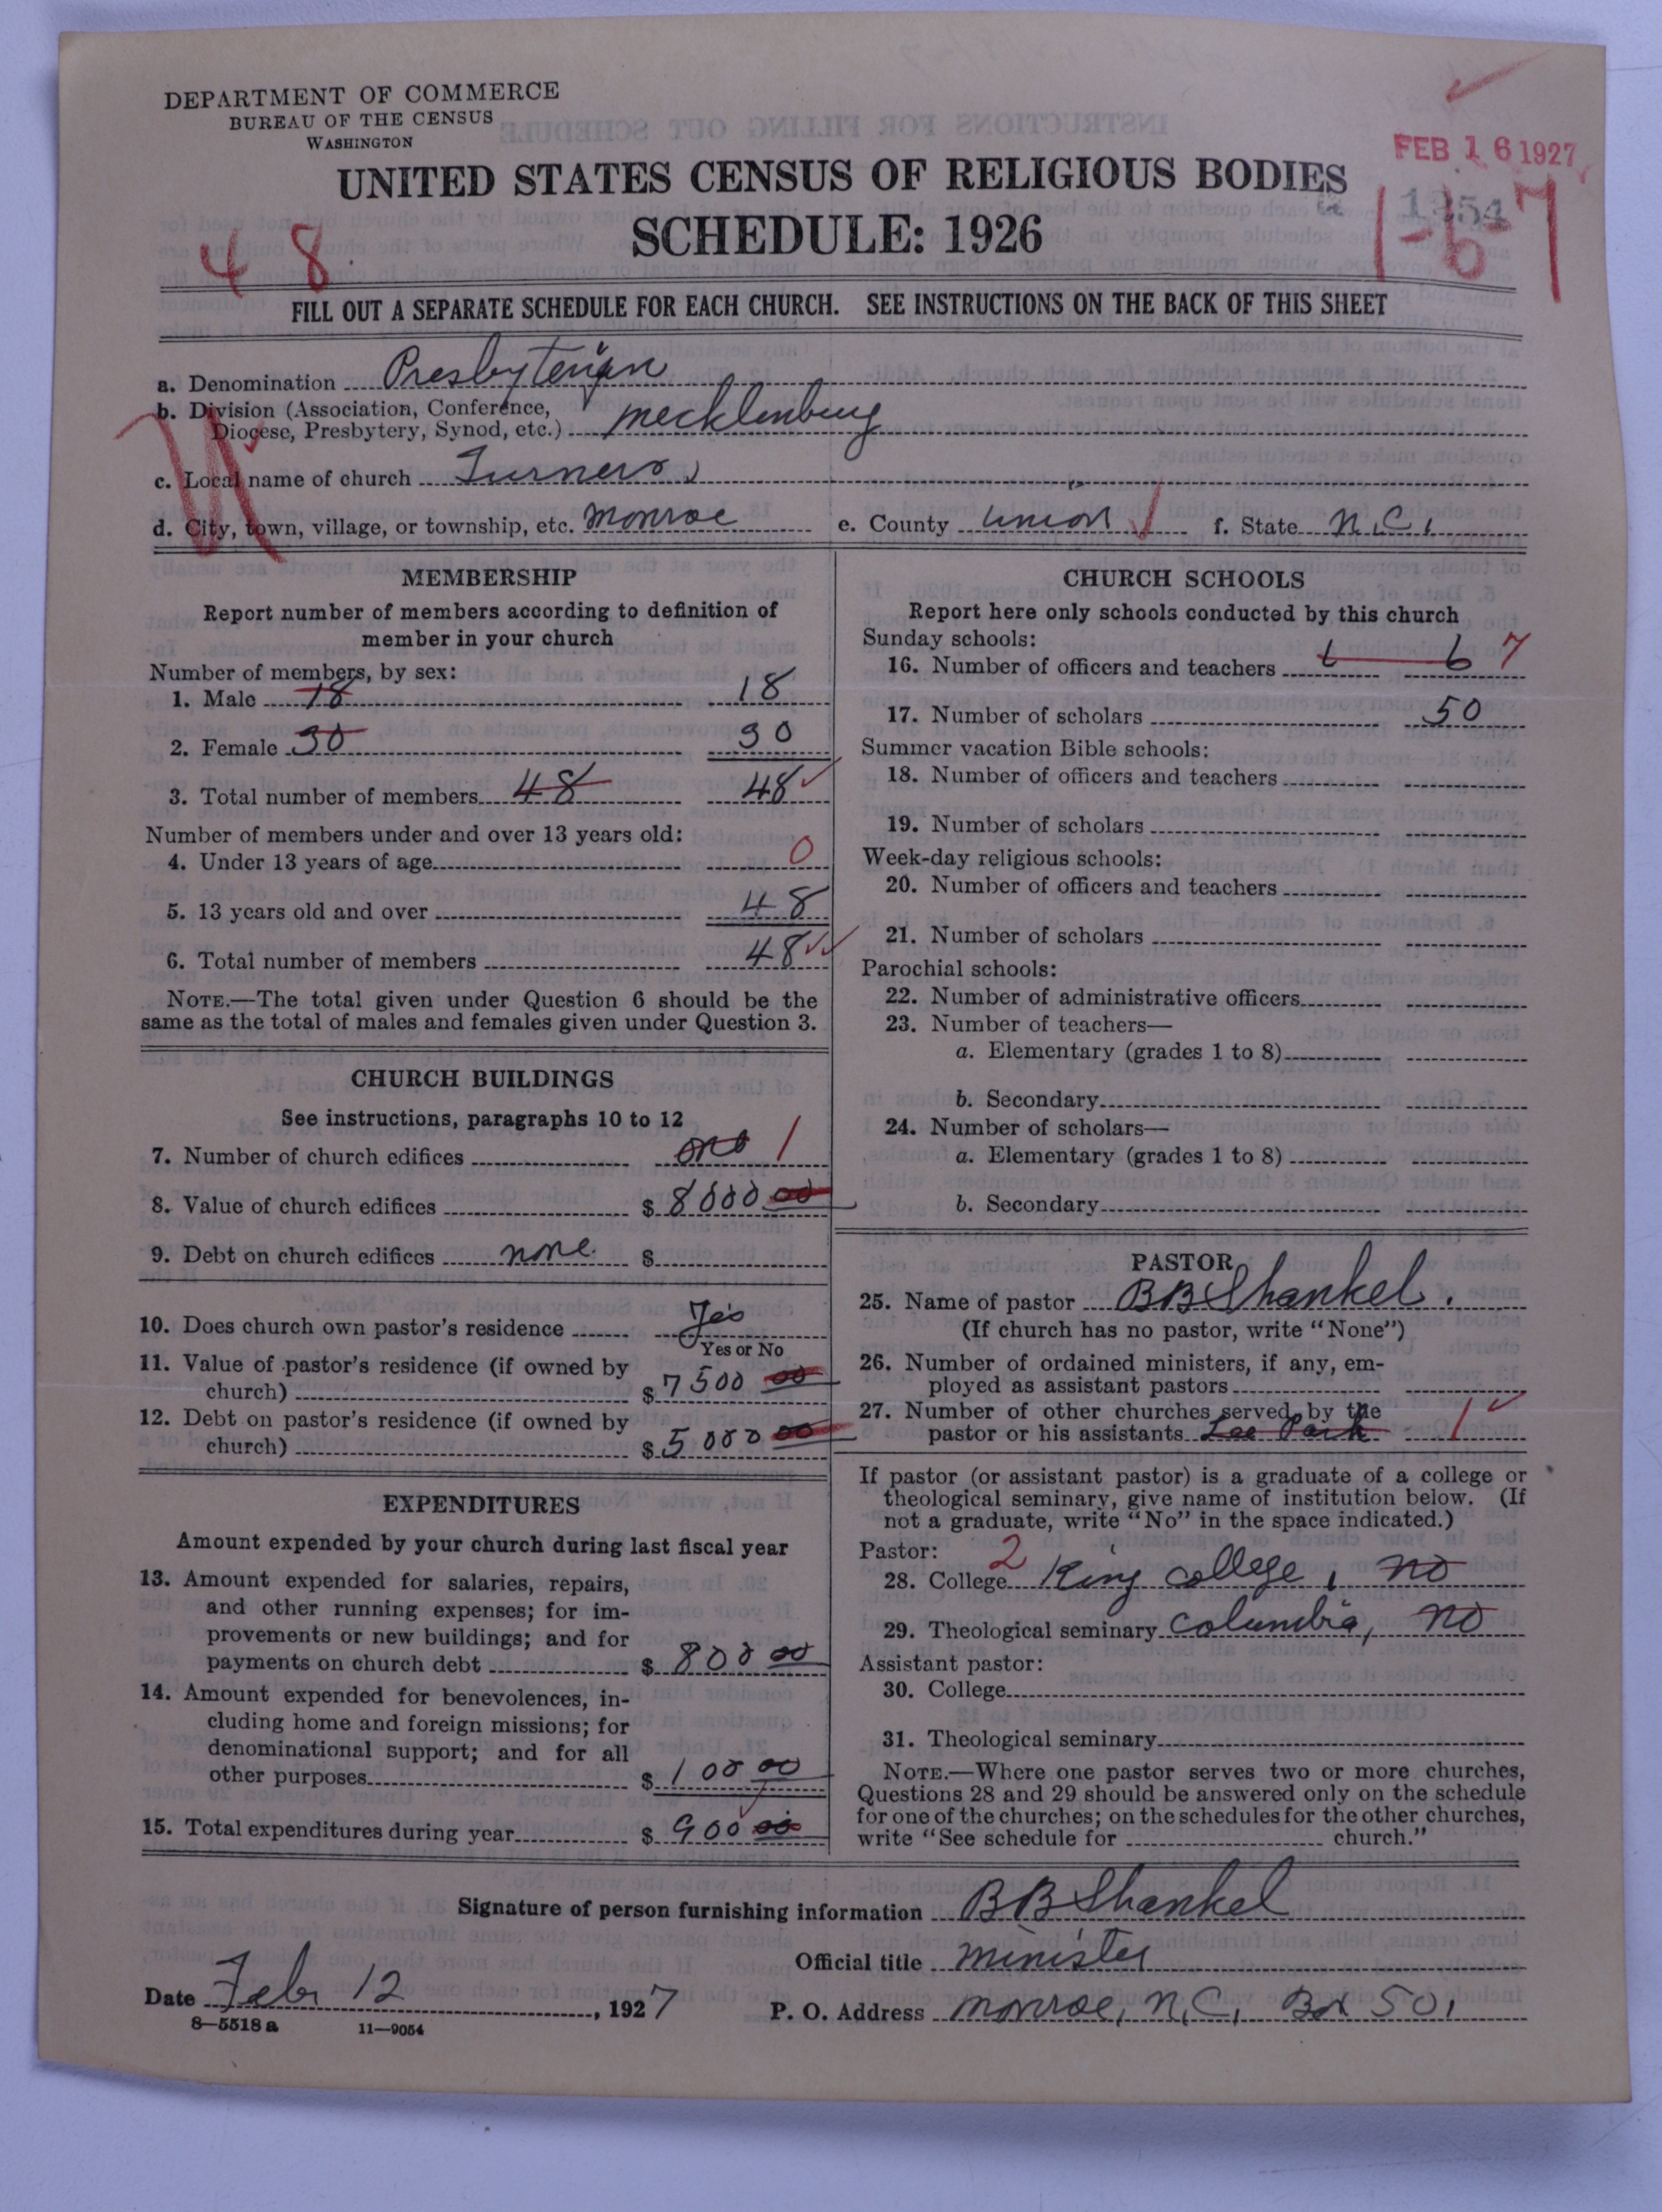 DEPARTMENT OF COMMERCE
BUREAU OF THE CENSUS
WASHINGTON
FEB 16 1927
UNITED STATES CENSUS OF RELIGIOUS BODIES
SCHEDULE: 1926
48
FILL OUT A SEPARATE SCHEDULE FOR EACH CHURCH. SEE INSTRUCTIONS ON THE BACK OF THIS SHEET
a. Denomination Presbyterian
b. Division (Association, Conference,
Diocese, Presbytery, Synod, etc.) Mecklenburg
c. Local name of church Turners
d. City, town, village, or township, etc. Monroe e. County Union f. State N.C.
MEMBERSHIP
Report number of members according to definition of
member in your church
Number of members, by sex:
1. Male 18 18
2. Female 30 30
3. Total number of members 48 48
Number of members under and over 13 years old:
4. Under 13 years of age 0
5. 13 years old and over 48
6. Total number of members 48
NOTE.—The total given under Question 6 should be the
same as the total of males and females given under Question 3.
CHURCH BUILDINGS
See instructions, paragraphs 10 to 12
7. Number of church edifices one 1
8. Value of church edifices $ 8000 00
9. Debt on church edifices none $
10. Does church own pastor's residence Yes
Yes or No
11. Value of pastor's residence (if owned by
church) $ 7500 00
12. Debt on pastor's residence (if owned by
church) $ 5000 00
EXPENDITURES
Amount expended by your church during last fiscal year
13. Amount expended for salaries, repairs,
and other running expenses; for im-
provements or new buildings; and for
payments on church debt $ 800 00
14. Amount expended for benevolences, in-
cluding home and foreign missions; for
denominational support; and for all
other purposes $ 100 00
15. Total expenditures during year $ 900 00
CHURCH SCHOOLS
Report here only schools conducted by this church
Sunday schools:
16. Number of officers and teachers 6 6 7
17. Number of scholars 50
Summer vacation Bible schools:
18. Number of officers and teachers
19. Number of scholars
Week-day religious schools:
20. Number of officers and teachers
21. Number of scholars
Parochial schools:
22. Number of administrative officers
23. Number of teachers—
a. Elementary (grades 1 to 8)
b. Secondary
24. Number of scholars—
a. Elementary (grades 1 to 8)
b. Secondary
PASTOR
25. Name of pastor BB Shankel.
(If church has no pastor, write "None")
26. Number of ordained ministers, if any, em-
ployed as assistant pastors
27. Number of other churches served by the
pastor or his assistants Lee Park 1
If pastor (or assistant pastor) is a graduate of a college or
theological seminary, give name of institution below. (If
not a graduate, write "No" in the space indicated.)
Pastor: 2
28. College King College, no
29. Theological seminary Columbia, no
Assistant pastor:
30. College
31. Theological seminary
NOTE.—Where one pastor serves two or more churches,
Questions 28 and 29 should be answered only on the schedule
for one of the churches; on the schedules for the other churches,
write "See schedule for church."
Signature of person furnishing information BB Shankel
Official title Minister
Date Feb 12, 1927 P. O. Address Monroe, N.C, Box 501
8—5518 a 11—9054